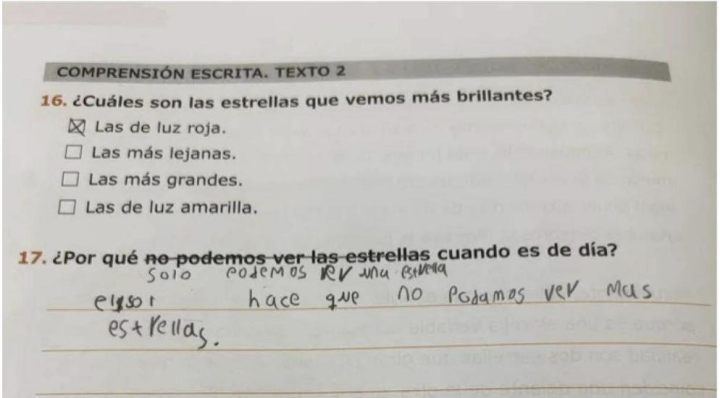 COMPRENSIÓN ESCRITA. TEXTO 2
16. ¿Cuáles son las estrellas que vemos más brillantes?
Las de luz roja.
Las más lejanas.
Las más grandes.
Las de luz amarilla.
17. ¿Por qué no podemos ver las estrellas cuando es de día?
solo podemos ver una estrella
el sol hace que no podamos ver mas
estrellas.